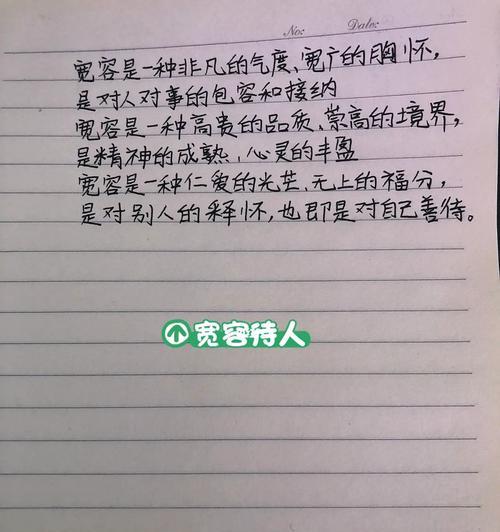 No:
Date:
宽容是一种非凡的气度、宽广的胸怀，
是对人对事的包容和接纳
宽容是一种高贵的品质、崇高的境界，
是精神的成熟、心灵的丰盈
宽容是一种仁爱的光芒、无上的福分，
是对别人的释怀，也即是对自己善待。
宽容待人